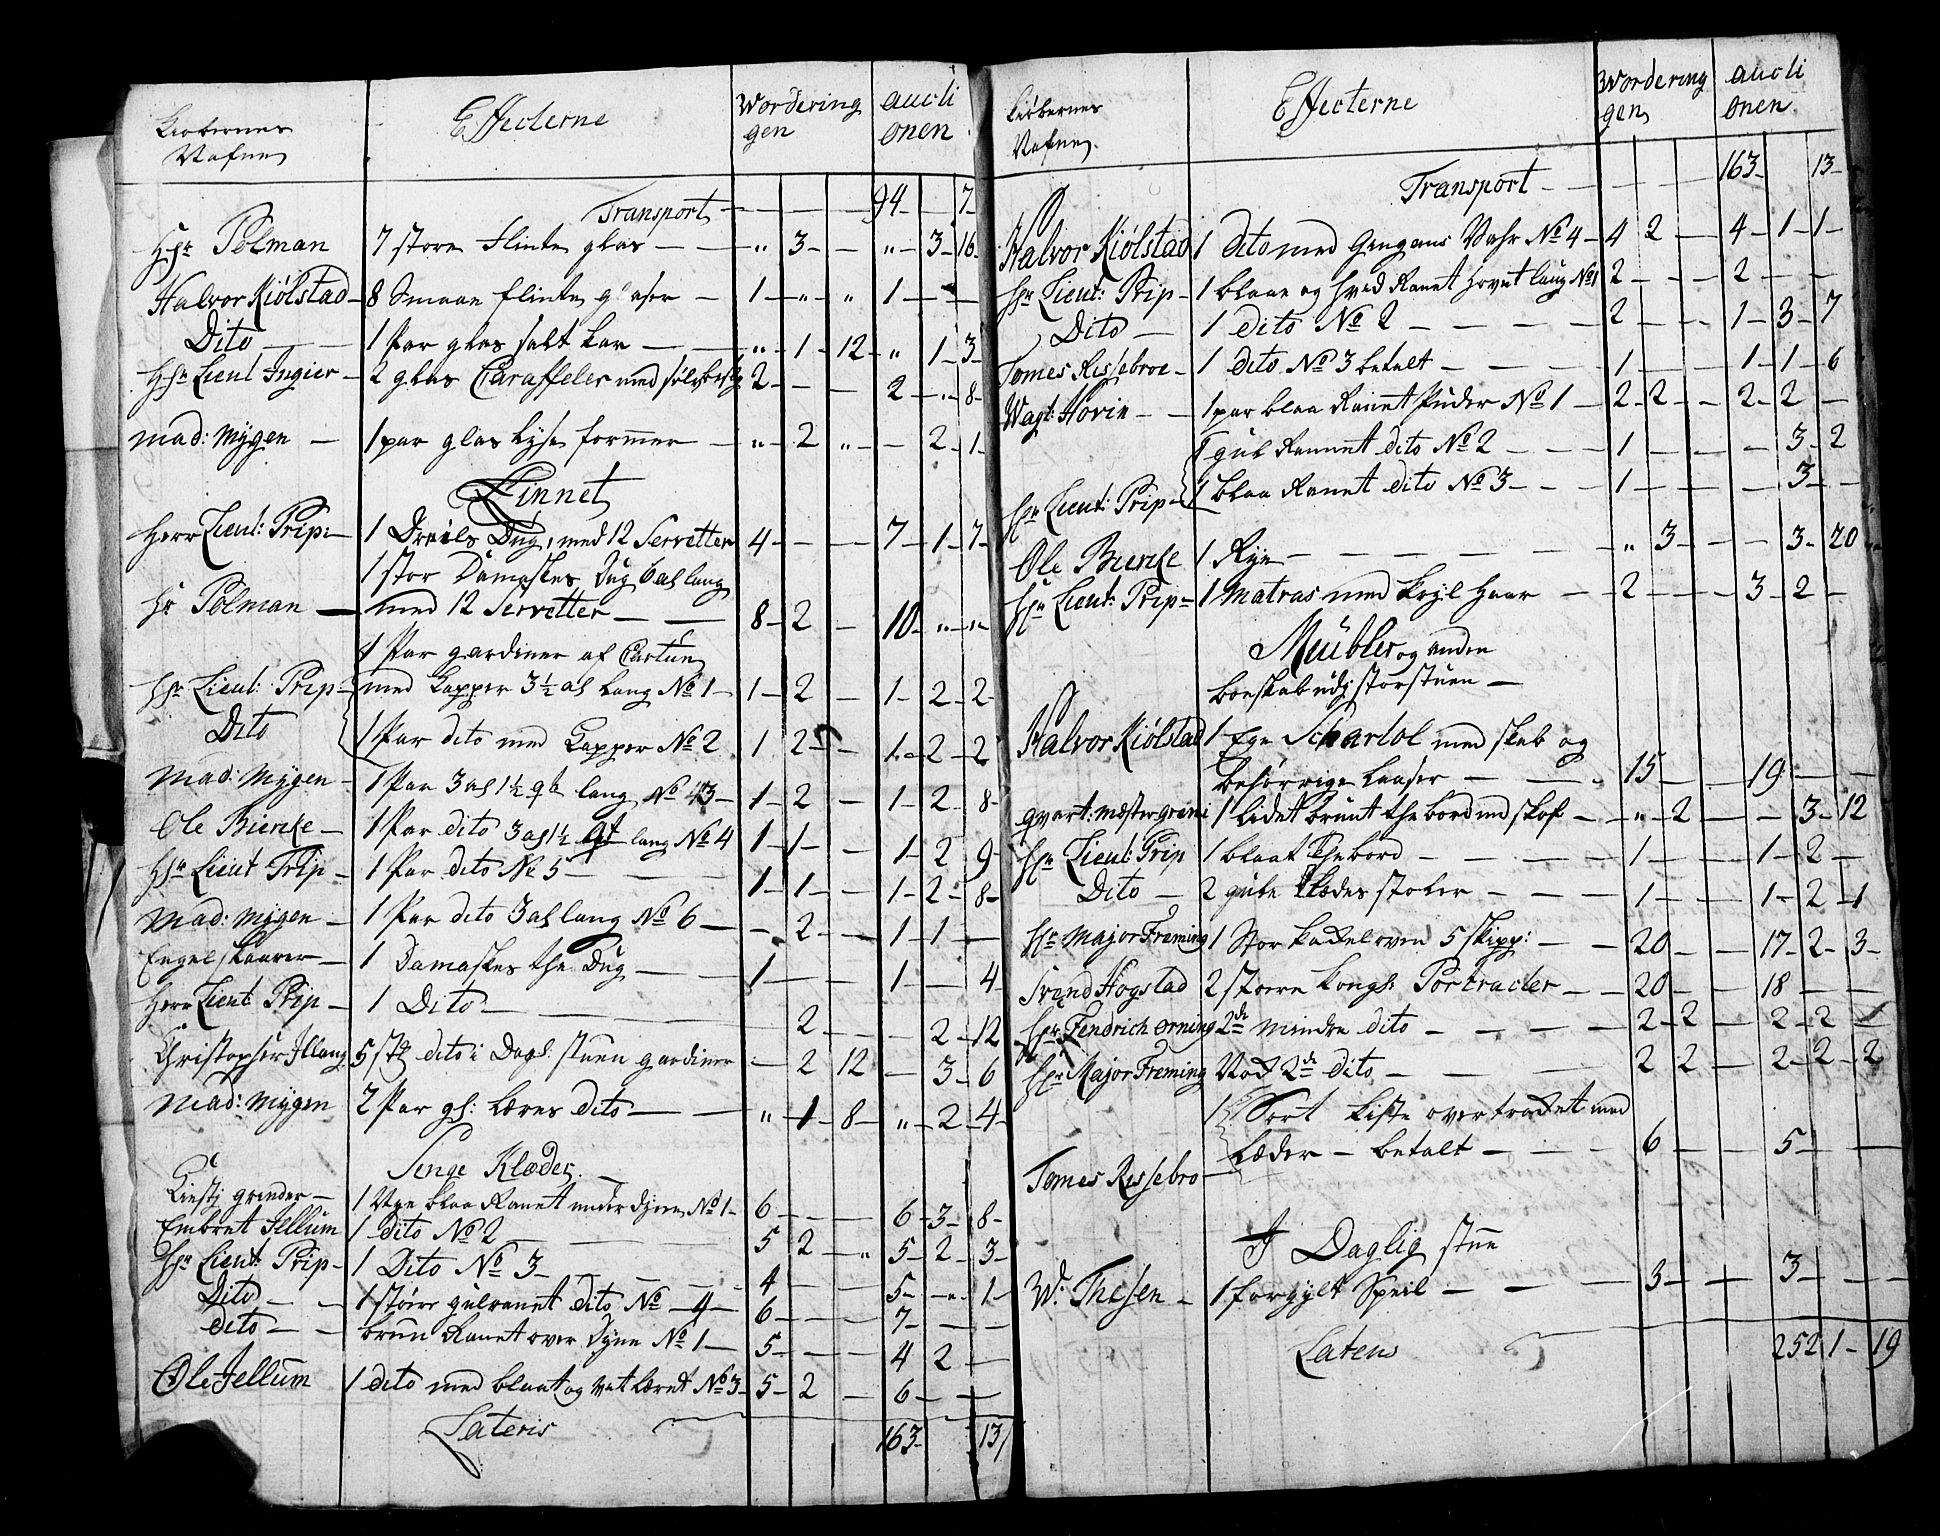 Kiøbernes Nafne | Effecterne | Wordering gen | aucti onen
Transport — — — — 94 — 7
Hr Polman | 7 store flinte glas — | " 3 — | " 3 16
Halvor Kiølstad | 8 Smaae flinte glaser — | 1 " " | 1 — —
Dito | 1 Par glas salt kar — | " 1 12 | " 1 3
Hr Lieut Ingier | 2 glas Caraffeler med | 2 — — | 2 " 8
Mad: Mÿgen | 1 par glas lyse former | " 2 " | — 2 1
Linnet
Herr Lieut: Prip | 1 Dreils Dug, med 12 Servetter | 4 — — | 7 1 7
1 stor Damaskes Dug 6 al lang
Hr Polman | med 12 Servetter | 8 2 — | 10 " "
1 Par gardiner af Cartun
Hr Lieut: Prip | med Kapper 3½ al lang No 1 | 1 2 — | 1 2 2
Dito | 1 Par dito med Kapper No 2 | 1 2 — | 1 2 2
Mad: Mÿgen | 1 Par 3 al 1½ qt lang No 3 | 1 2 — | 1 2 8
Ole Bierke | 1 Par dito 3 al 1½ qt lang No 4 | 1 1 — | 1 2 9
Hr Lieut Prip | 1 Par dito No 5 | 1 1 — | 1 2 8
Mad: Mÿgen | 1 Par dito 3 al lang No 6 | — 2 — | 1 1 —
Engel Skaarer | 1 Damaskes the Dug | 1 — — | 1 — 4
Herr Lieut Prip | 1 Dito | 2 — | — 2 12
Christopher | 5 stk dito i Dagl: stuen gardiner | — 2 12 | — 3 6
Mad: Mÿgen | 2 Par gl: Læres dito | " 1 8 | " 2 4
Senge Klæder
grinder | 1 Nye blaa Ranet under dyne No 1 | 6 — — | 6 3 8
Embret Jellum | 1 dito No 2 | 5 2 " | 5 2 3
Hr Lieut: Prip | 1 Dito No 3 | 4 — — | 5 " 1
Dito | 1 større gulranet dito No 4 | 6 — — | 7 — —
dito | brun Ranet over Dyne No 1 | 5 — — | 4 2 —
Ole Jellum | 1 dito med blaat og No 3 | 5 2 — | 6 — —
Lateris | 163 — 13
Kiøbernes Nafne | Effecterne | Wordering gen | aucti onen
Transport — — — — 163 — 13
Halvor Kiølstad | 1 dito med Gingans Vahr No 4 | 4 2 — | 4 1 1
Hr Lieut: Prip | 1 blaae og hvid Ranet Hovet No 1 | 2 — — | 2 — —
Dito | 1 dito No 2 | 2 — — | 1 3 7
Tomes Rissebroe | 1 dito No 3 betalt | 1 — — | 1 1 6
Wagt: Hovin | 1 par blaa Ranet Puder No 1 | 2 2 — | 2 2 —
1 gul Rannet dito No 2 | 1 — — | — 3 2
Hr Lieut: Prip | 1 blaa Ranet dito No 3 | 1 — — | — 3 —
Ole Bierke | 1 Rye | " 3 — | — 3 20
Hr Lieut: Prip | 1 Matras med Krÿl Haar | 2 — — | 3 2 —
Meübler og andre
boeskab udj storstuen
Halvor Kiølstad | 1 Ege Schartol med skab og
behørrige laaser | 15 — — | 19 — —
qvart: mæster | 1 lidet brunt the bord med skof | " 2 — | — 3 12
Hr Lieut: Prip | 1 blaat The bord | 1 — — | 1 2 —
Dito | 2 gule Klædes stoler | 1 — — | 1 2 1
Hr Major Freming | 1 Stor Kackelovn 5 skipp: | 20 — — | 17 2 3
Svend Hogstad | 2 store Kongl: Portracter | 20 — — | 18 — —
Hr Fendrich Orning | 2de mindre dito | 2 2 — | 2 2 —
Hr Major Freming | Nok 2de dito | 2 2 — | 2 2 2
1 Sort Kiste overtracket med
Tomes Rissebro | Læder — betalt | 6 — — | 5 — —
I Daglig stue
W: Thesen | 1 forgylt Speil | 3 — — | 3 — —
Latens | 252 1 19